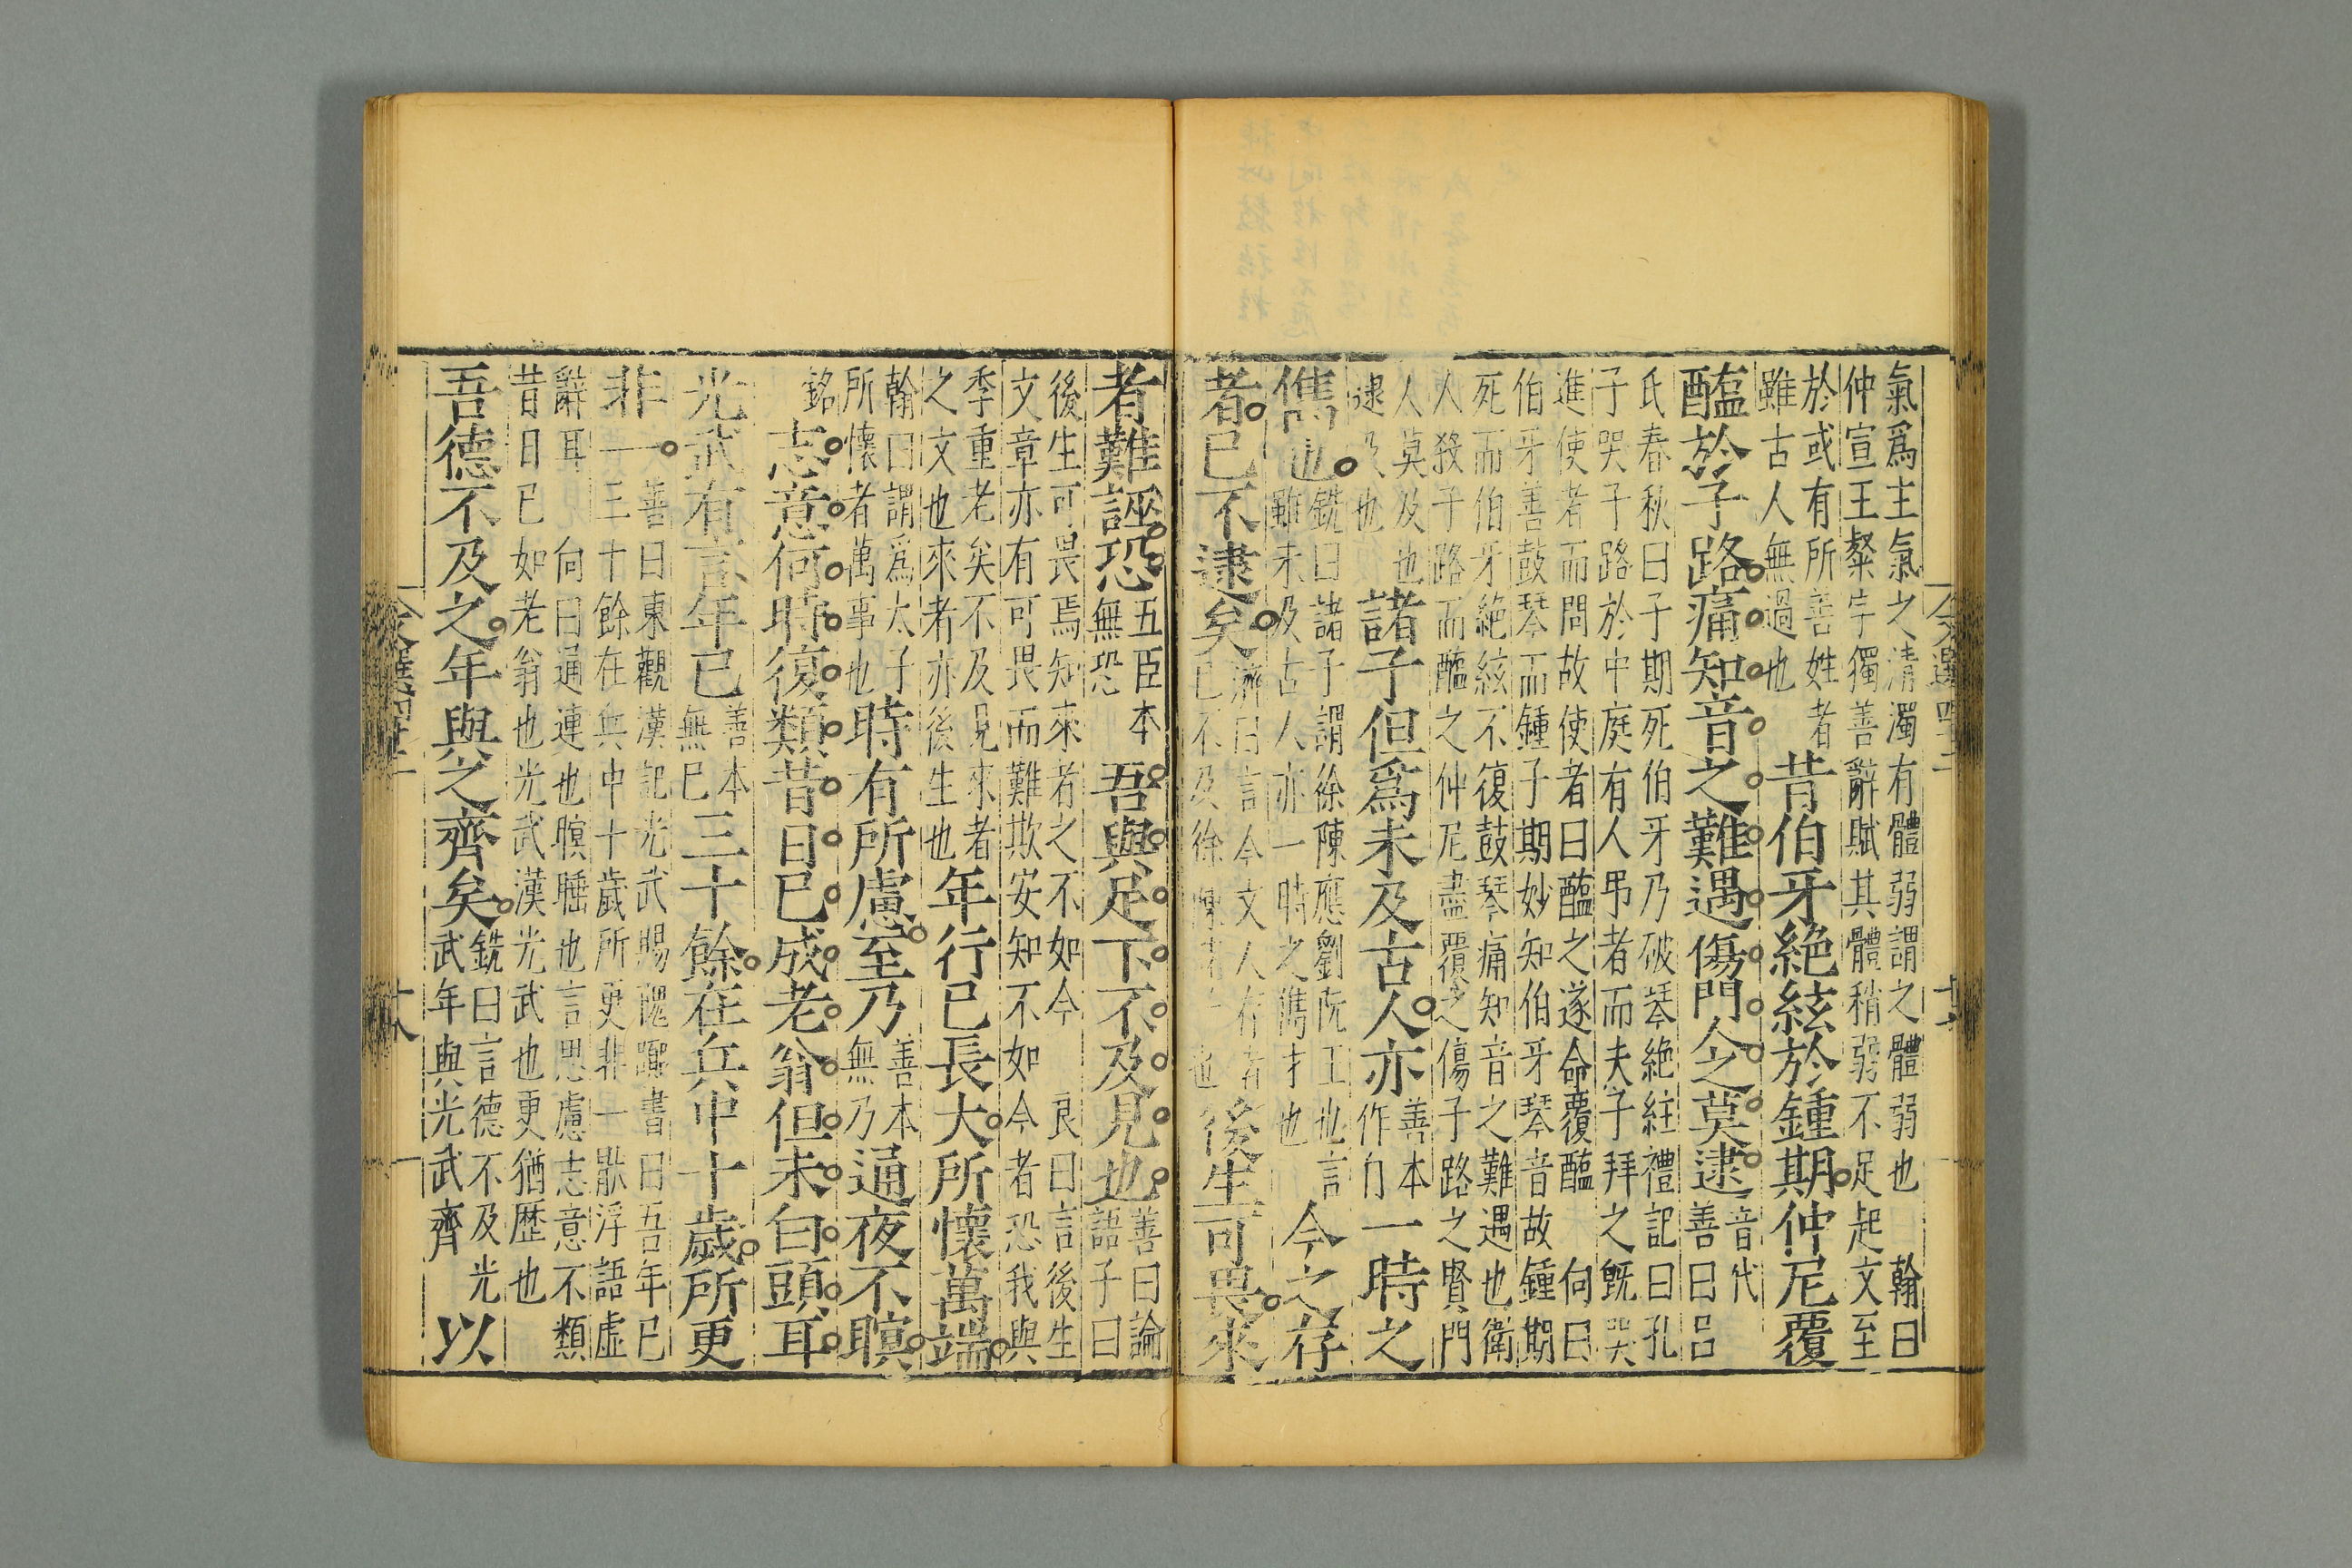 氣爲主氣之清濁有體弱謂之體弱也 翰曰
仲宣王粲字獨善辭賦其體稍弱不足起文至
於或有所善姓者
雖古人無過也
昔伯牙絶絃於鍾期仲尼覆
醢於子路痛知音之難遇傷門人之莫逮
音代
善曰呂
氏春秋曰子期死伯牙乃破琴絶絃禮記曰孔
子哭子路於中庭有人弔者而夫子拜之旣哭
進使者而問故使者曰醢之遂命覆醢 向曰
伯牙善鼓琴而鍾子期妙知伯牙琴音故鍾期
死而伯牙絶絃不復鼓琴痛知音之難遇也衛
人殺子路而醢之仲尼盡覆之傷子路之賢門
人莫及也
逮及也
諸子但爲未及古人亦
善本
作自
一時之
儁也
銑曰諸子謂徐陳應劉阮王也言
雖未及古人亦一時之儁才也
今之存
者已不逮矣
濟曰言今文人存者
已不及徐陳
也
後生可畏來
者難誣恐
五臣本
無恐
吾與足下不及見也
善曰論
語子曰
後生可畏焉知來者之不如今 良曰言後生
文章亦有可畏而難欺安知不如今者恐我與
季重老矣不及見來者
之文也來者亦後生也
年行已長大所懷萬端
翰曰謂爲太子
所懷者萬事也
時有所慮至乃
善本
無乃
通夜不瞑
銘
志意何時復類昔日已成老翁但未白頭耳
光武有言年已
善本
無已
三十餘在兵中十歲所更
非一
善曰東觀漢記光武賜隗囂書曰吾年已
三十餘在兵中十歲所更非一厭浮語虛
辭耳 向曰通連也瞑睡也言思慮志意不類
昔日已如老翁也光武漢光武也更猶歷也
吾德不及之年與之齊矣
銑曰言德不及光
武年與光武齊
以